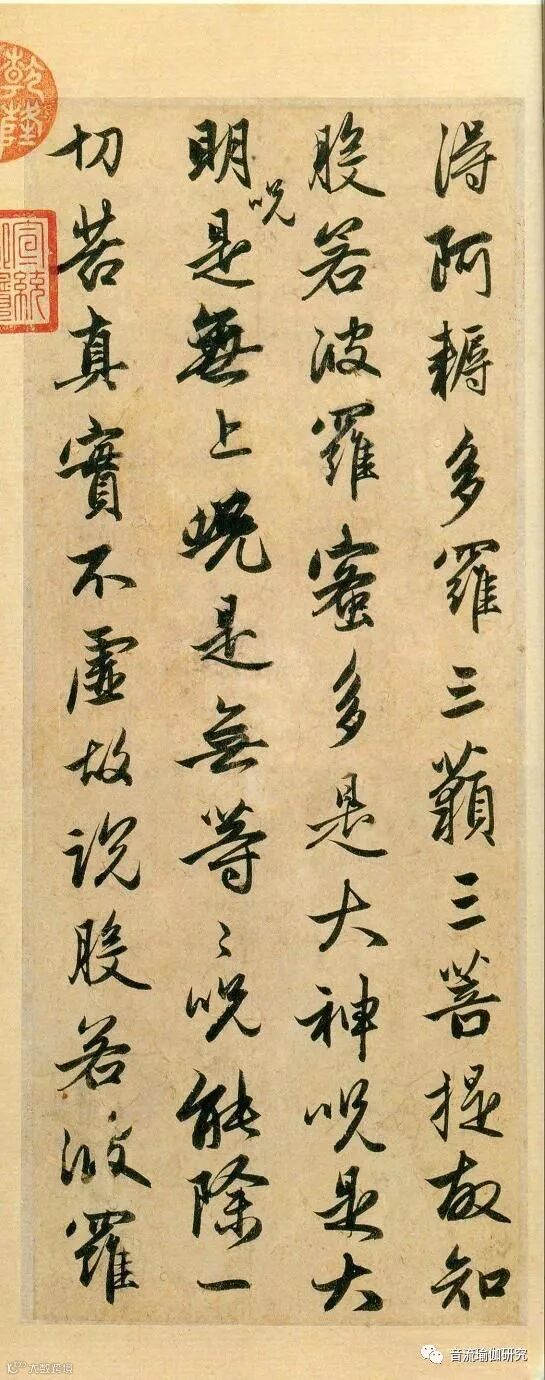 得阿耨多羅三藐三菩提故知
般若波羅蜜多是大神呪是大
明呪是無上呪是無等〻呪能除一
切苦真實不虛故說般若波羅
乾隆
宣統
音流瑜伽研究
大数跨境